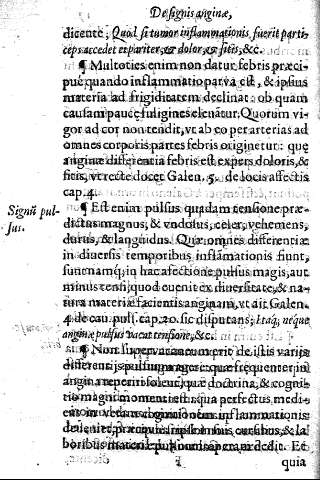 De signis anginæ,
dicente; Quod si tumor inflammationis fuerit parti-
ceps accedet ei pariter, & dolor, & sitis, &c.
¶ Multoties enim non datur febris præci-
puè quando inflammatio parva est, & ipsius
materia ad frigiditatem declinat: ob quam
causam paucę fuligines elevātur. Quorum vi-
gor ad cor non tendit, vt ab eo per arterias ad
omnes corporis partes febris originetur: quę
anginæ differentia febris est expers doloris, &
sitis, vt rectè docet Galen. 5. de locis affectis
cap. 4.
Signū pul-
sus.
¶ Est enim pulsus quadam tensione præ-
dictus magnus, & vndosus, celer, vehemens,
durus, & languidus. Quæ omnes differentiæ
in diversis temporibus inflāmationis fiunt,
suntenamq; in hac affectione pulsus magis, aut
minus tensi, quod euenit ex diversitate, & na-
tura materiæ facientis anginam, vt ait Galen.
4. de cau. puls. cap. 20. sic disputans; Itaq, neque
anginæ pulsus vacat tensione, &c.
¶ Non supervacaneum erit de istis varijs
differentijs pulsuum agere: quæ frequenter in
angina reperiri solent, quæ doctrina, & cognis
tio magni momenti est: qua perfectus medi-
inflammationis
&
boribus Et
quia